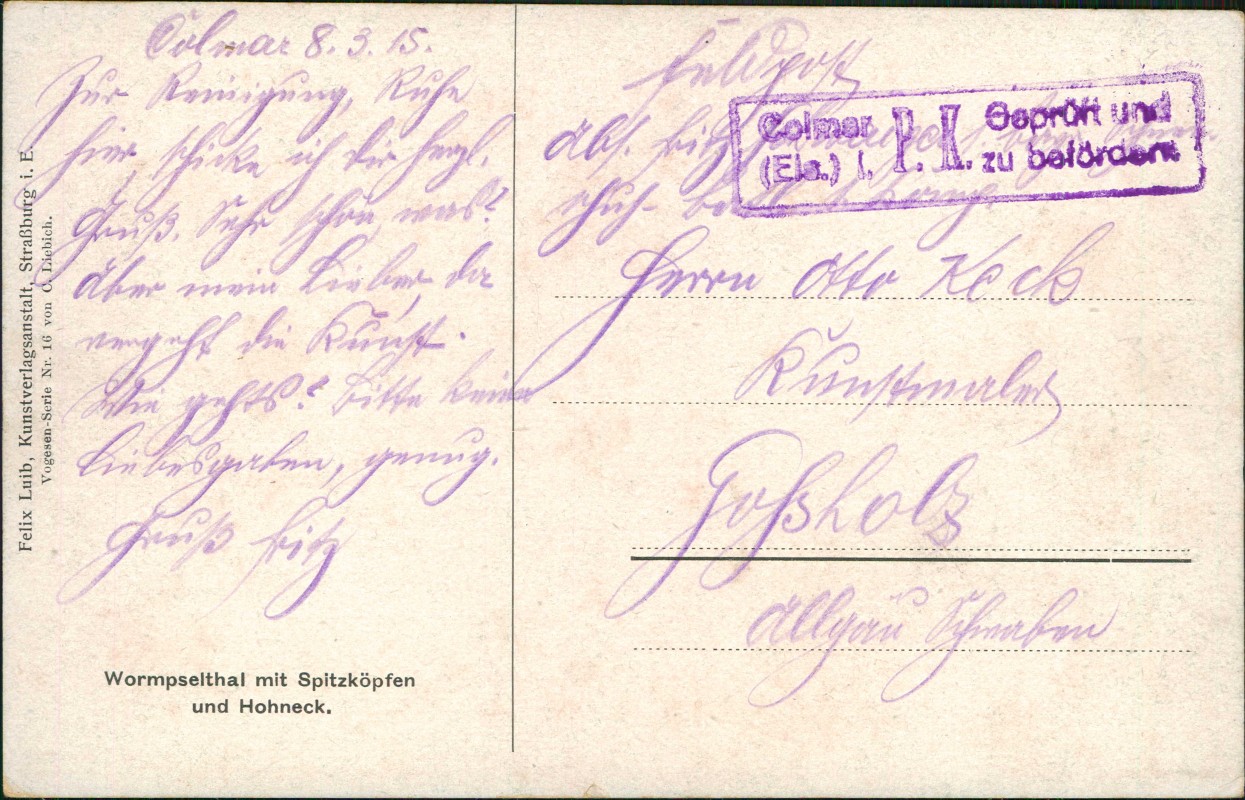 Colmar 8. 3. 15.
Zur Reinigung, Ruhe
hier, schicke ich dir herzl.
Gruß. Sehr schön, was?
Aber mein Lieber, da
vergeht die Kunst.
Wie gehts? Bitte keine
Liebesgaben, genug.
Gruß Fritz
Wormpselthal mit Spitzköpfen
und Hohneck.
Felix Luib, Kunstverlagsanstalt, Straßburg i. E.
Vogesen-Serie Nr. 16 von C. Liebich.
Feldpost
Abs. Fritz
Colmar (Els.) I. P. K. Geprüft und zu befördern
Herrn Otto Keck
Kunstmaler
Goßholz
Allgäu Schwaben